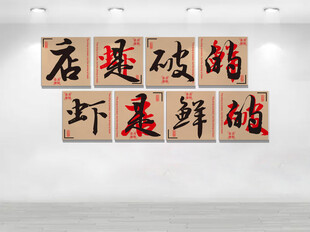 店是破的
虾是鲜的